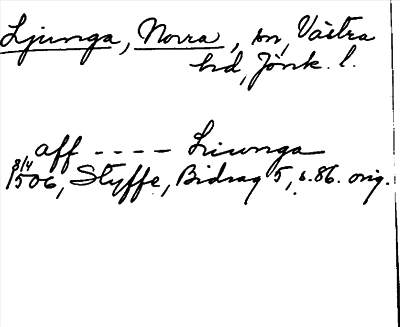 Ljunga, Norra, sn, Västra
hd, Jönk. l.
aff ---- Liwnga
8/4 1506, Styffe, Bidrag 5, s. 86. orig.